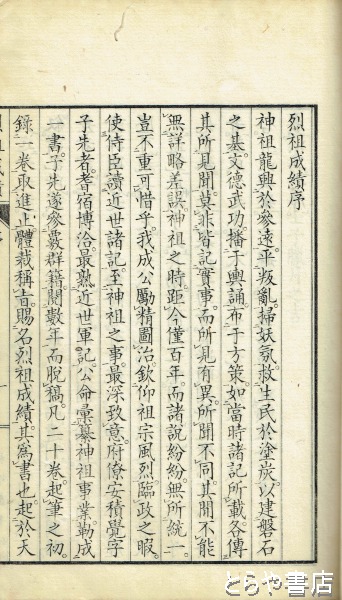 烈祖成績序
神祖龍興於參遠平叛亂掃妖氛救生民於塗炭以建磐石
之基文德武功播于輿誦布于方策如當時諸記所載各傳
其所見聞莫非皆記實事而所見有異所聞不同其間不能
無詳略差誤神祖之時距今僅百年而諸說紛紛無所統一
豈不重可惜乎我成公勵精圖治欽仰祖宗風烈臨政之暇
使侍臣讀近世諸記至神祖之事最深致意府僚安積覺字
子先者耆宿博洽最熟近世軍記公命彙纂神祖事業勒成
一書子先遂參覈群籍閱數年而脫稿凡二十卷起筆之初
錄一卷取進止體裁稱旨賜名烈祖成績其為書也起於天
とらや書店